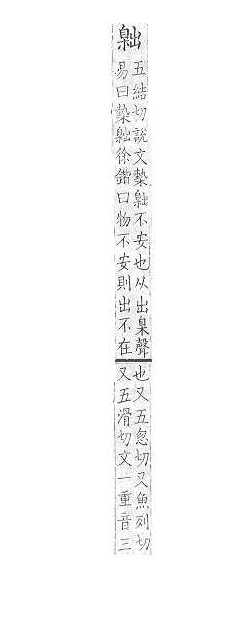 𡴎
五結切說文槷𡴎不安也从出臬聲
易曰槷𡴎徐鍇曰物不安則出不在
也又五忽切又魚列切
又五滑切文一重音三